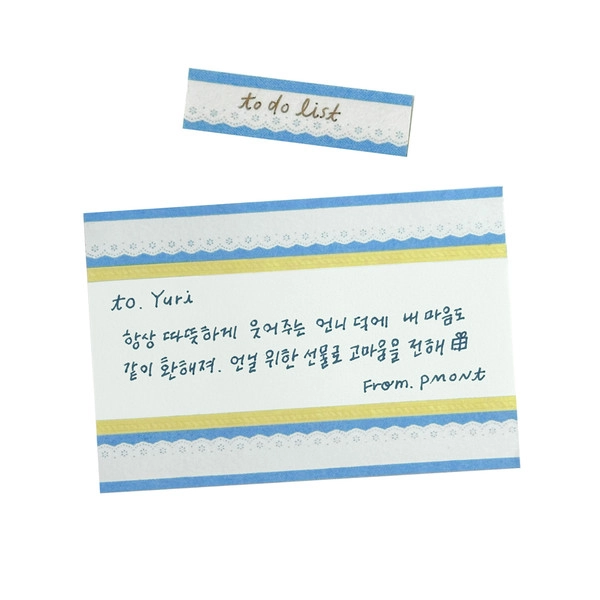 to do list
to. Yuri
항상 따뜻하게 웃어주는 언니 덕에 내 마음도
같이 환해져. 언닐 위한 선물로 고마움을 전해
From. PMONT